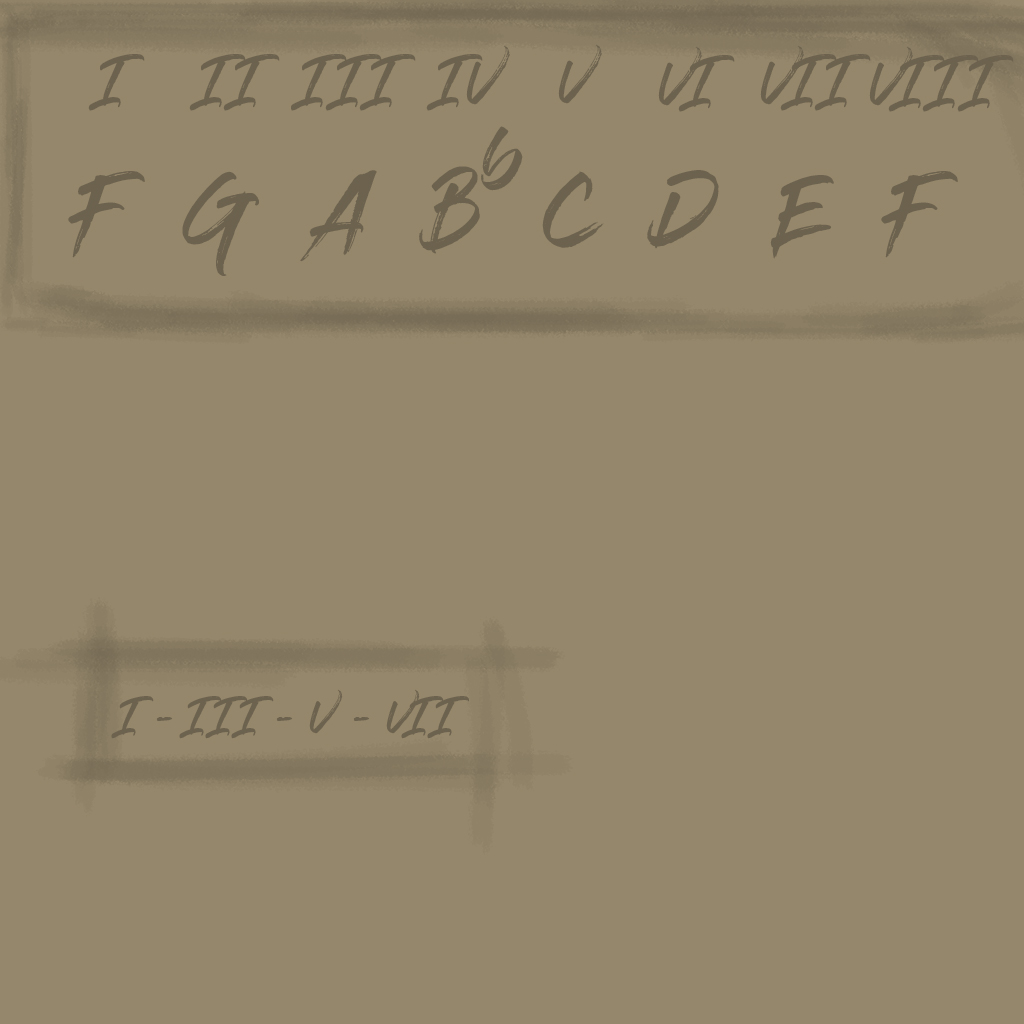 I II III IV V VI VII VIII
F G A B♭ C D E F
I - III - V - VII